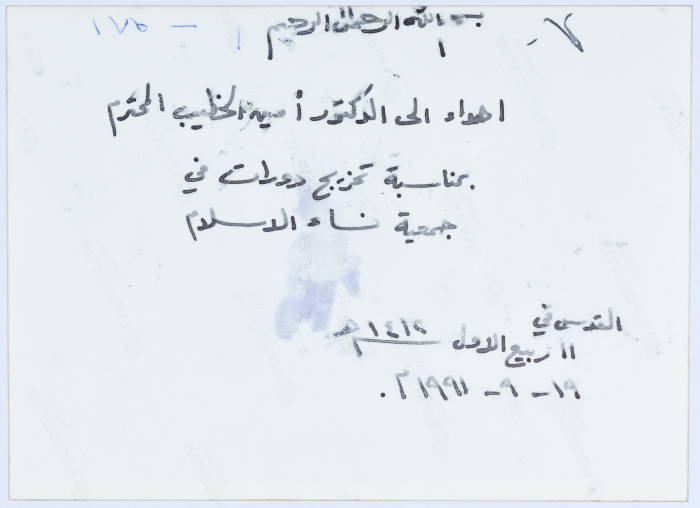 بسم الله الرحمن الرحيم
اهداء الى الدكتور أمين الخطيب المحترم
بمناسبة تخريج دورات في
جمعية نساء الاسلام
القدس في
١١ ربيع الاول ١٤١٢ هـ
١٩ - ٩ - ١٩٩١ م .